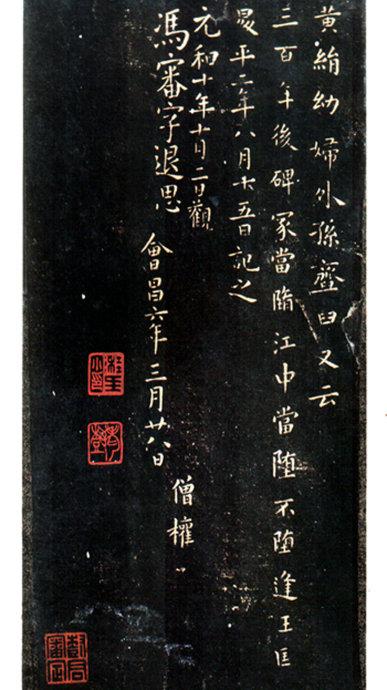 黃絹幼婦外孫虀臼又云
三百年後碑冢當隋江中當堕不堕逢王匡
昇平二年八月十五日記之
元和十年十月二日觀
馮審字退思
會昌六年三月廿八日
僧權